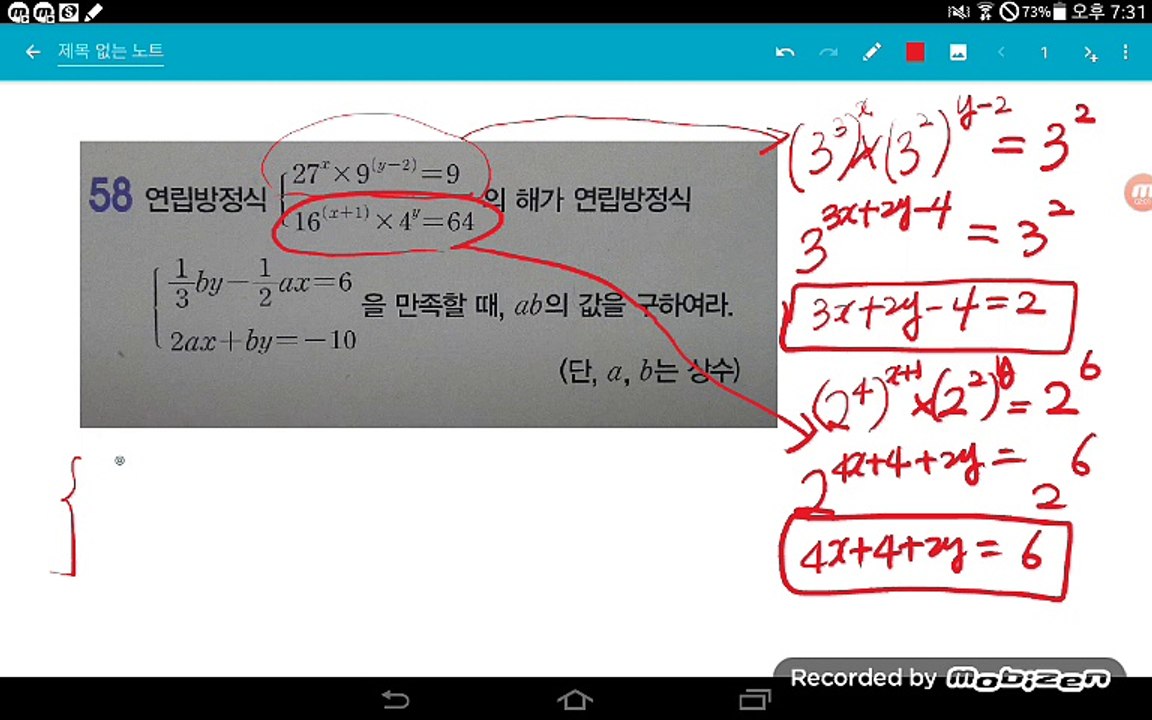 73% 오후 7:31
제목 없는 노트
1
58 연립방정식 { 27^x × 9^(y-2) = 9
16^(x+1) × 4^y = 64 의 해가 연립방정식
{ 1/3 by - 1/2 ax = 6
2ax + by = -10 을 만족할 때, ab의 값을 구하여라.
(단, a, b는 상수)
(3^3)^x × (3^2)^y-2 = 3^2
3^3x+2y-4 = 3^2
3x+2y-4=2
(2^4)^x+1 × (2^2)^y = 2^6
2^4x+4+2y = 2^6
4x+4+2y = 6
{
Recorded by mobizen